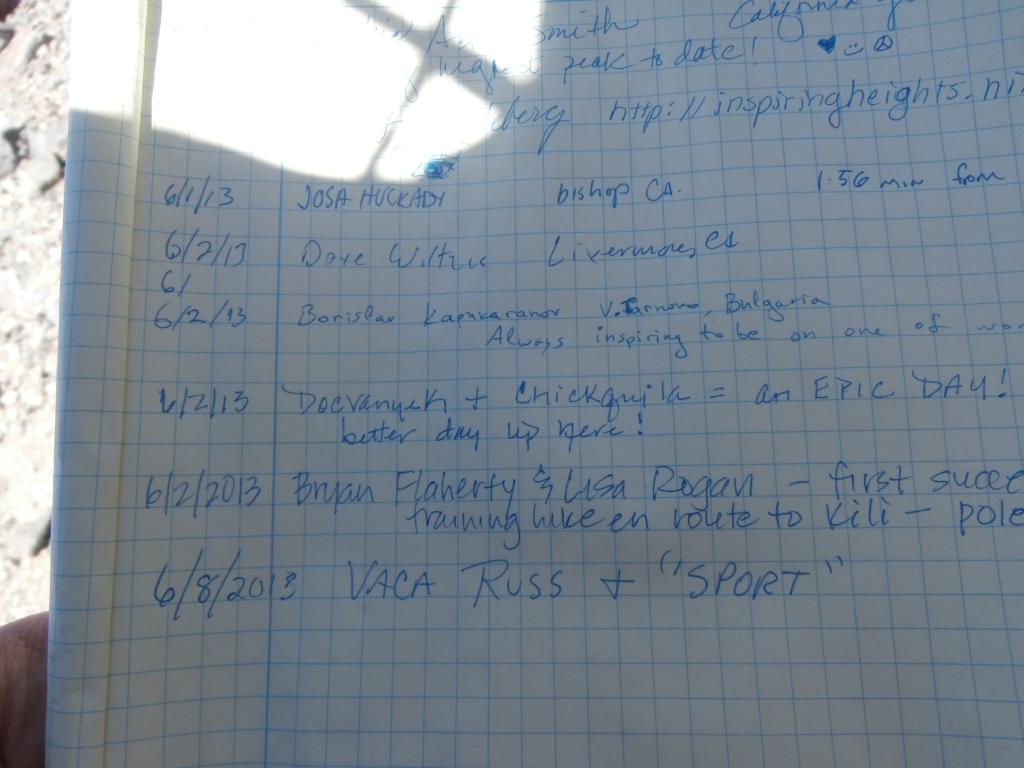 Smith California
highest peak to date! ♥ ☺ ☮
berg http://inspiringheights.
6/1/13 JOSA HUCKABY bishop CA. 1:56 min from
6/2/13 Dave Livermore, CA
6/
6/2/13 Borislav V.Tarnovo, Bulgaria
Always inspiring to be on one of
6/2/13 Docvanyuh + Chickquila = an EPIC DAY!
better day up here!
6/2/2013 Bryan Flaherty & Lisa Rogan - first succe
training hike en route to Kili - pole
6/8/2013 VACA RUSS + "SPORT"